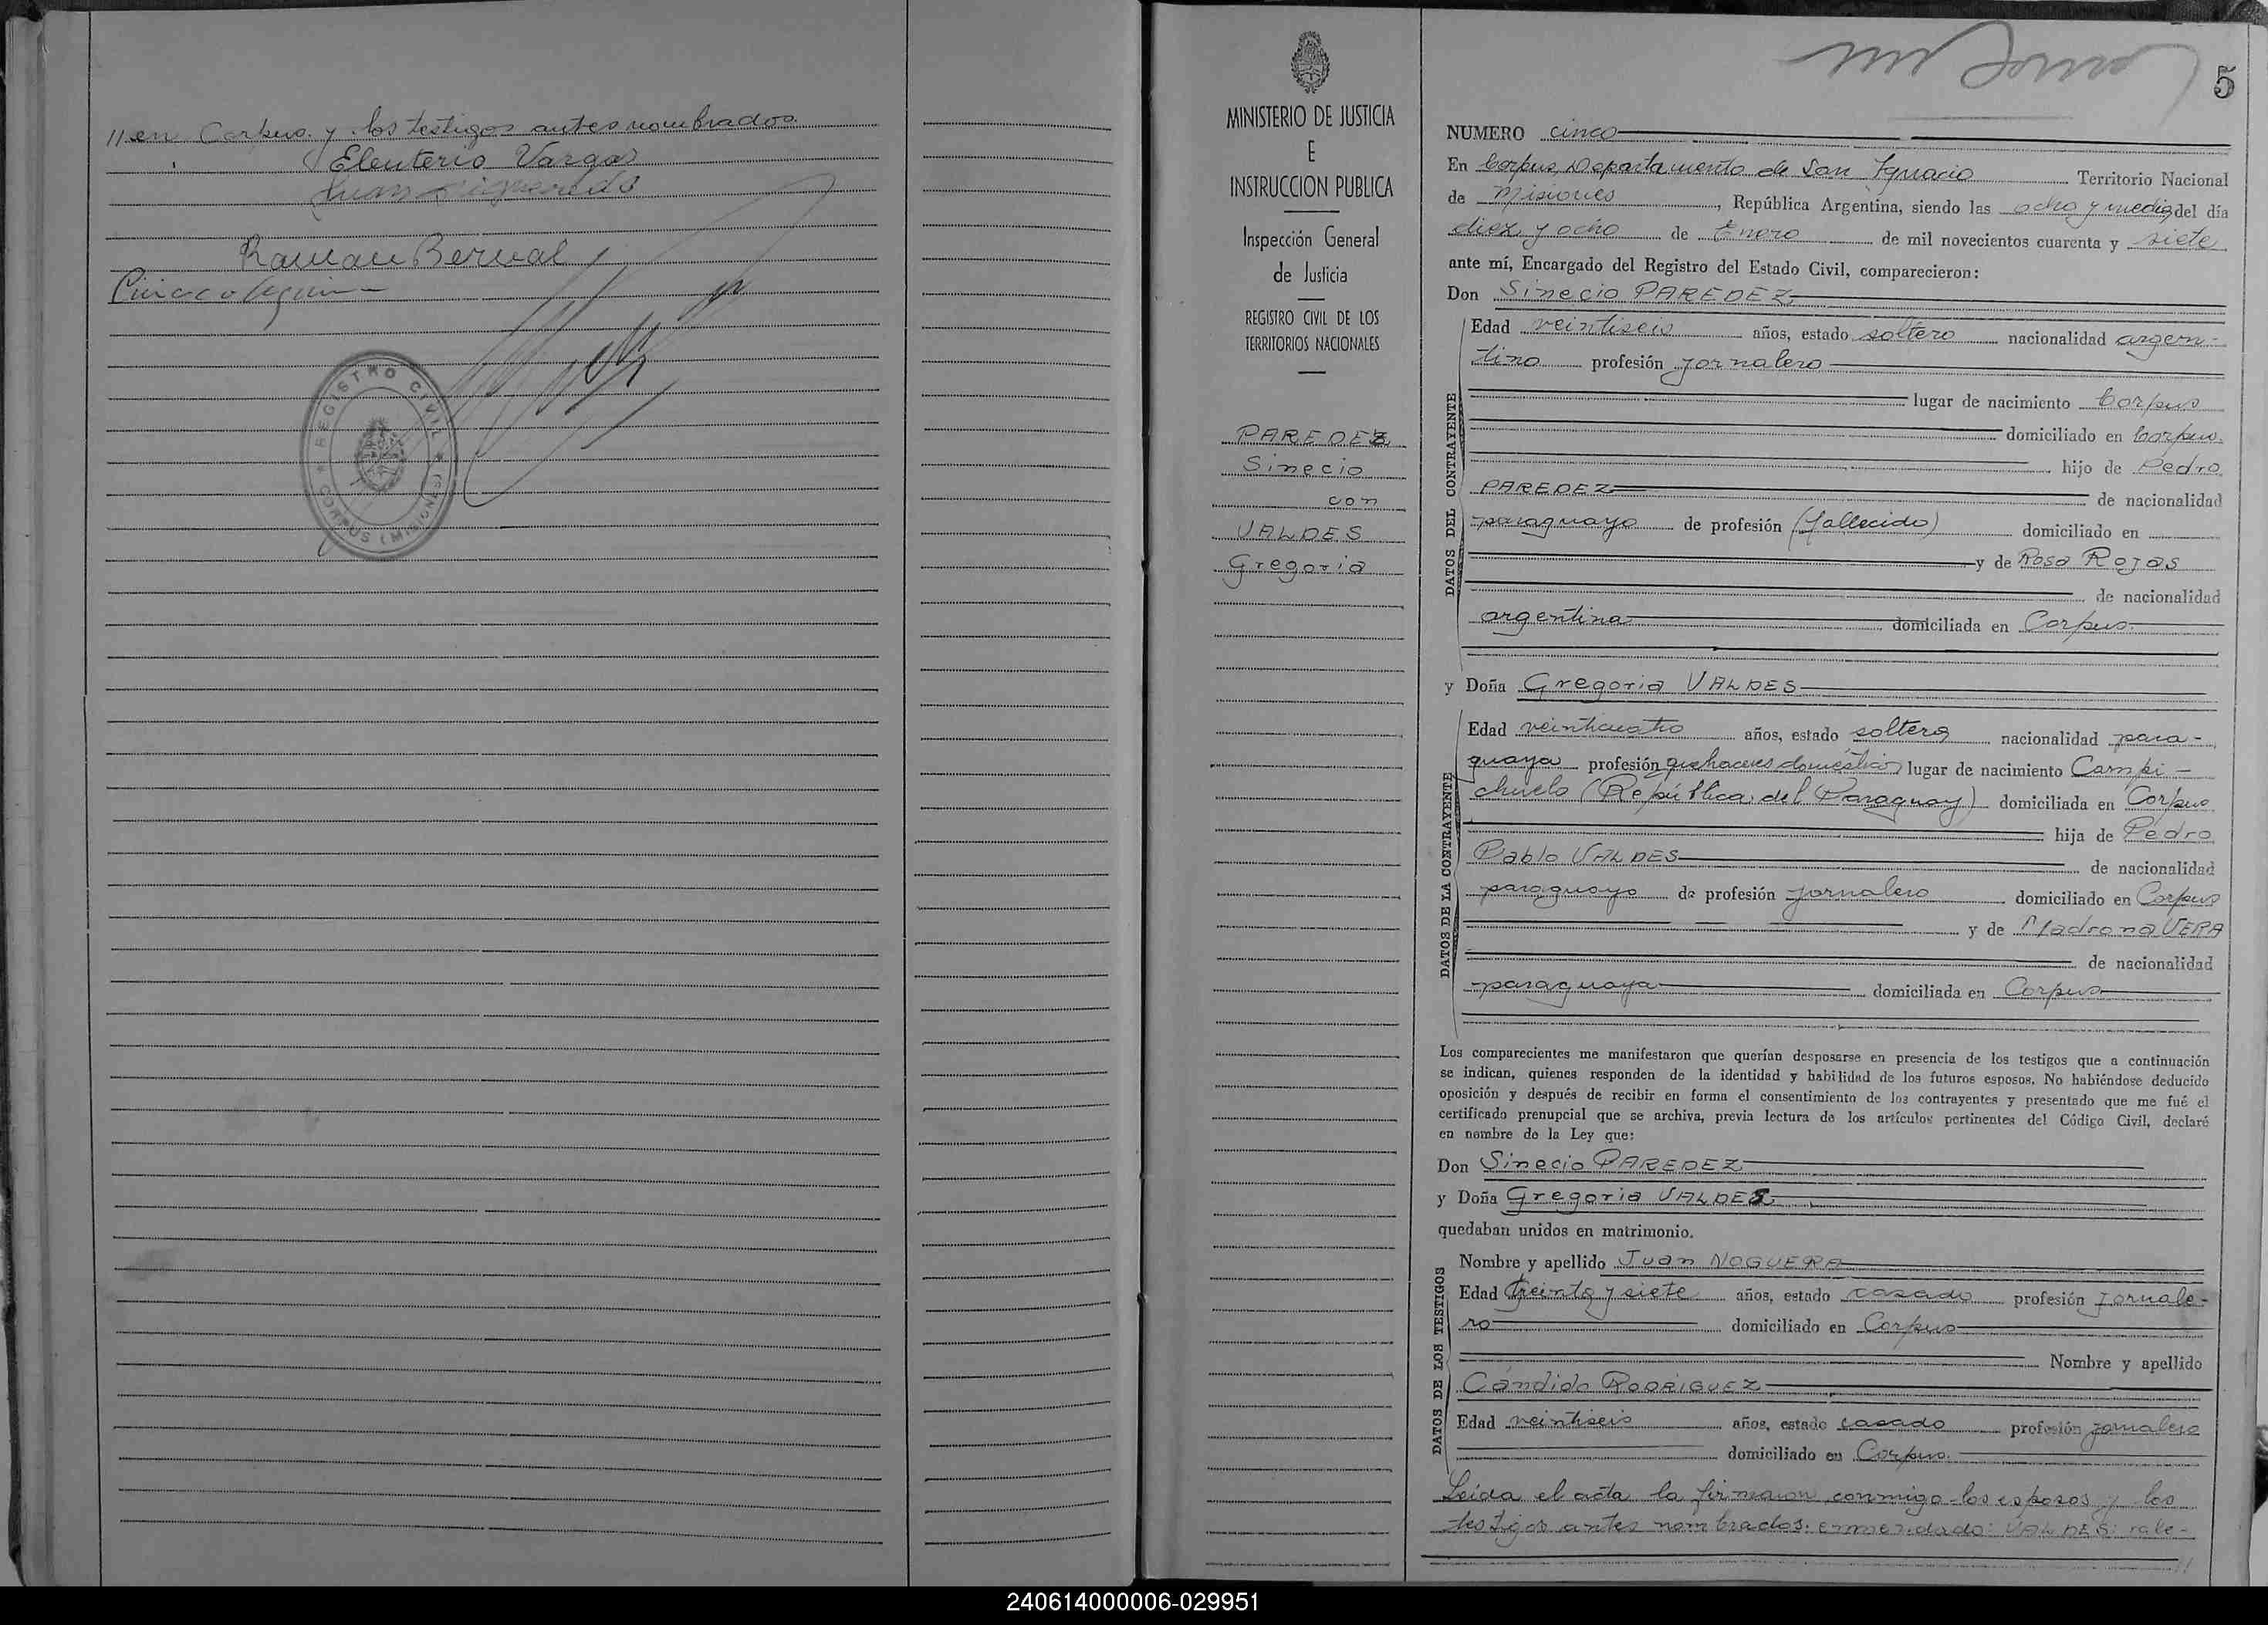 //en Corpus. y los testigos antes nombrados.
Eleuterio Vargas
Juan Figueredo
Raman Bernal
REGISTRO CIVIL
CORPUS (MISIONES)
MINISTERIO DE JUSTICIA
E
INSTRUCCION PUBLICA
Inspección General
de Justicia
REGISTRO CIVIL DE LOS
TERRITORIOS NACIONALES
PAREDEZ
Sinecio
con
VALDES
Gregoria
5
NUMERO cinco
En Corpus, Departamento de San Ignacio Territorio Nacional
de Misiones, República Argentina, siendo las ocho y media del día
diez y ocho de Enero de mil novecientos cuarenta y siete
ante mí, Encargado del Registro del Estado Civil, comparecieron:
Don Sinecio PAREDEZ
DATOS DEL CONTRAYENTE
Edad veintiseis años, estado soltero nacionalidad argen-
tino profesión jornalero
lugar de nacimiento Corpus
domiciliado en Corpus.
hijo de Pedro
PAREDEZ de nacionalidad
paraguayo de profesión (fallecido) domiciliado en
y de Rosa ROJAS
de nacionalidad
argentina domiciliada en Corpus.
y Doña Gregoria VALDES
DATOS DE LA CONTRAYENTE
Edad veinticuatro años, estado soltera nacionalidad para-
guaya profesión quehaceres domésticos lugar de nacimiento Campi-
chuelo (República del Paraguay) domiciliada en Corpus
hija de Pedro
Pablo VALDES de nacionalidad
paraguayo de profesión jornalero domiciliado en Corpus
y de Madrona VERA
de nacionalidad
paraguaya domiciliada en Corpus
Los comparecientes me manifestaron que querían desposarse en presencia de los testigos que a continuación
se indican, quienes responden de la identidad y habilidad de los futuros esposos. No habiéndose deducido
oposición y después de recibir en forma el consentimiento de los contrayentes y presentado que me fué el
certificado prenupcial que se archiva, previa lectura de los artículos pertinentes del Código Civil, declaré
en nombre de la Ley que:
Don Sinecio PAREDEZ
y Doña Gregoria VALDES
quedaban unidos en matrimonio.
DATOS DE LOS TESTIGOS
Nombre y apellido Juan NOGUERA
Edad treinta y siete años, estado casado profesión jornale-
ro domiciliado en Corpus
Nombre y apellido
Cándido RODRIGUEZ
Edad veintiseis años, estado casado profesión jornalero
domiciliado en Corpus.
Leída el acta la firmaron conmigo los esposos y los
testigos antes nombrados. enmendado: VALDES: vale-
//
240614000006-029951